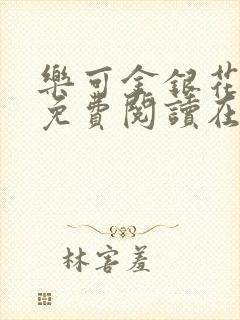 樂可金銀花
免費閱讀在
林害羞